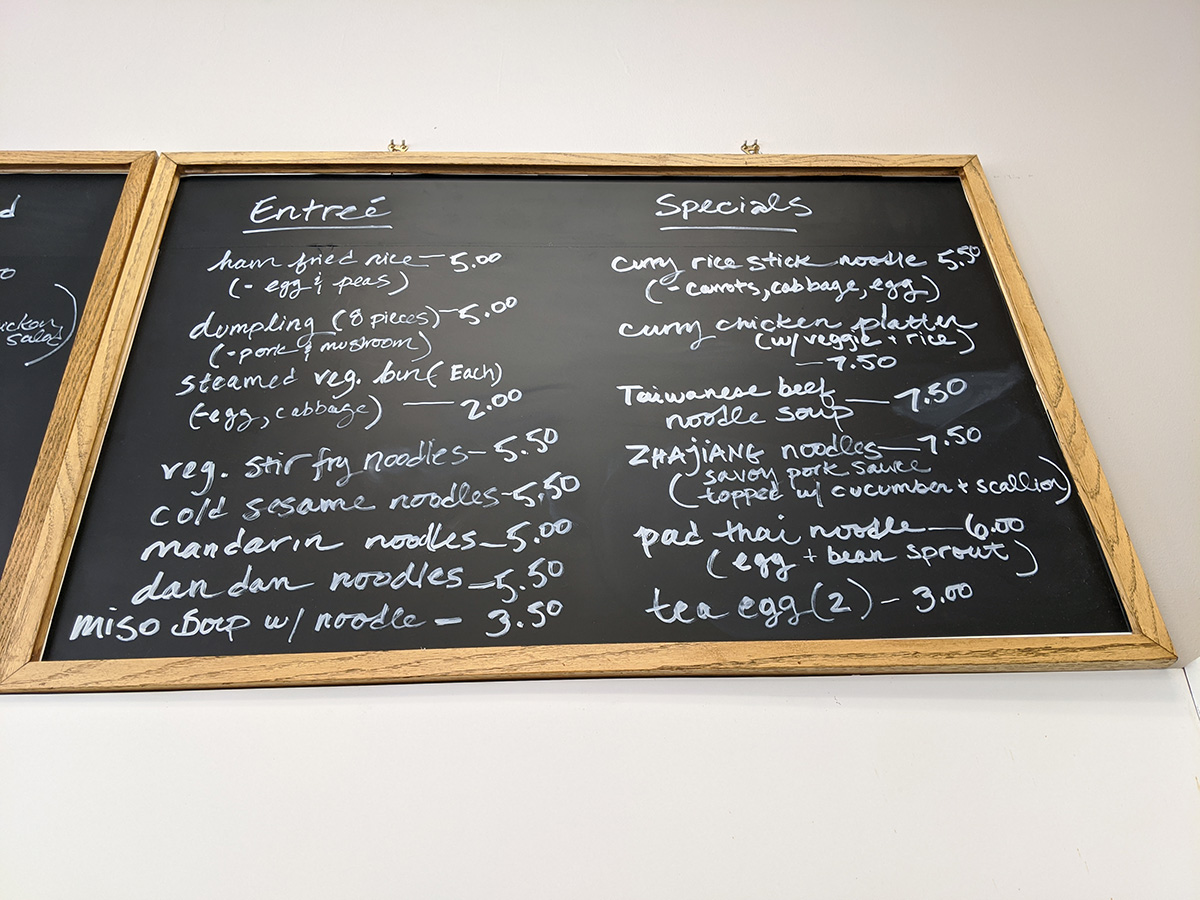 d
Entreé
ham fried rice — 5.00
(- egg & peas)
dumpling (8 pieces) — 5.00
(- pork & mushroom)
steamed veg. bun (Each)
(-egg, cabbage) — 2.00
veg. stir fry noodles — 5.50
cold sesame noodles — 5.50
mandarin noodles — 5.00
dan dan noodles — 5.50
miso Soup w/ noodle — 3.50
Specials
curry rice stick noodle 5.50
(- carrots, cabbage, egg)
curry chicken platter
(w/ veggie + rice)
— 7.50
Taiwanese beef — 7.50
noodle soup
ZHAJIANG noodles — 7.50
savoy pork sauce
(topped w/ cucumber + scallion)
pad thai noodle — 6.00
(egg + bean sprout)
tea egg (2) — 3.00